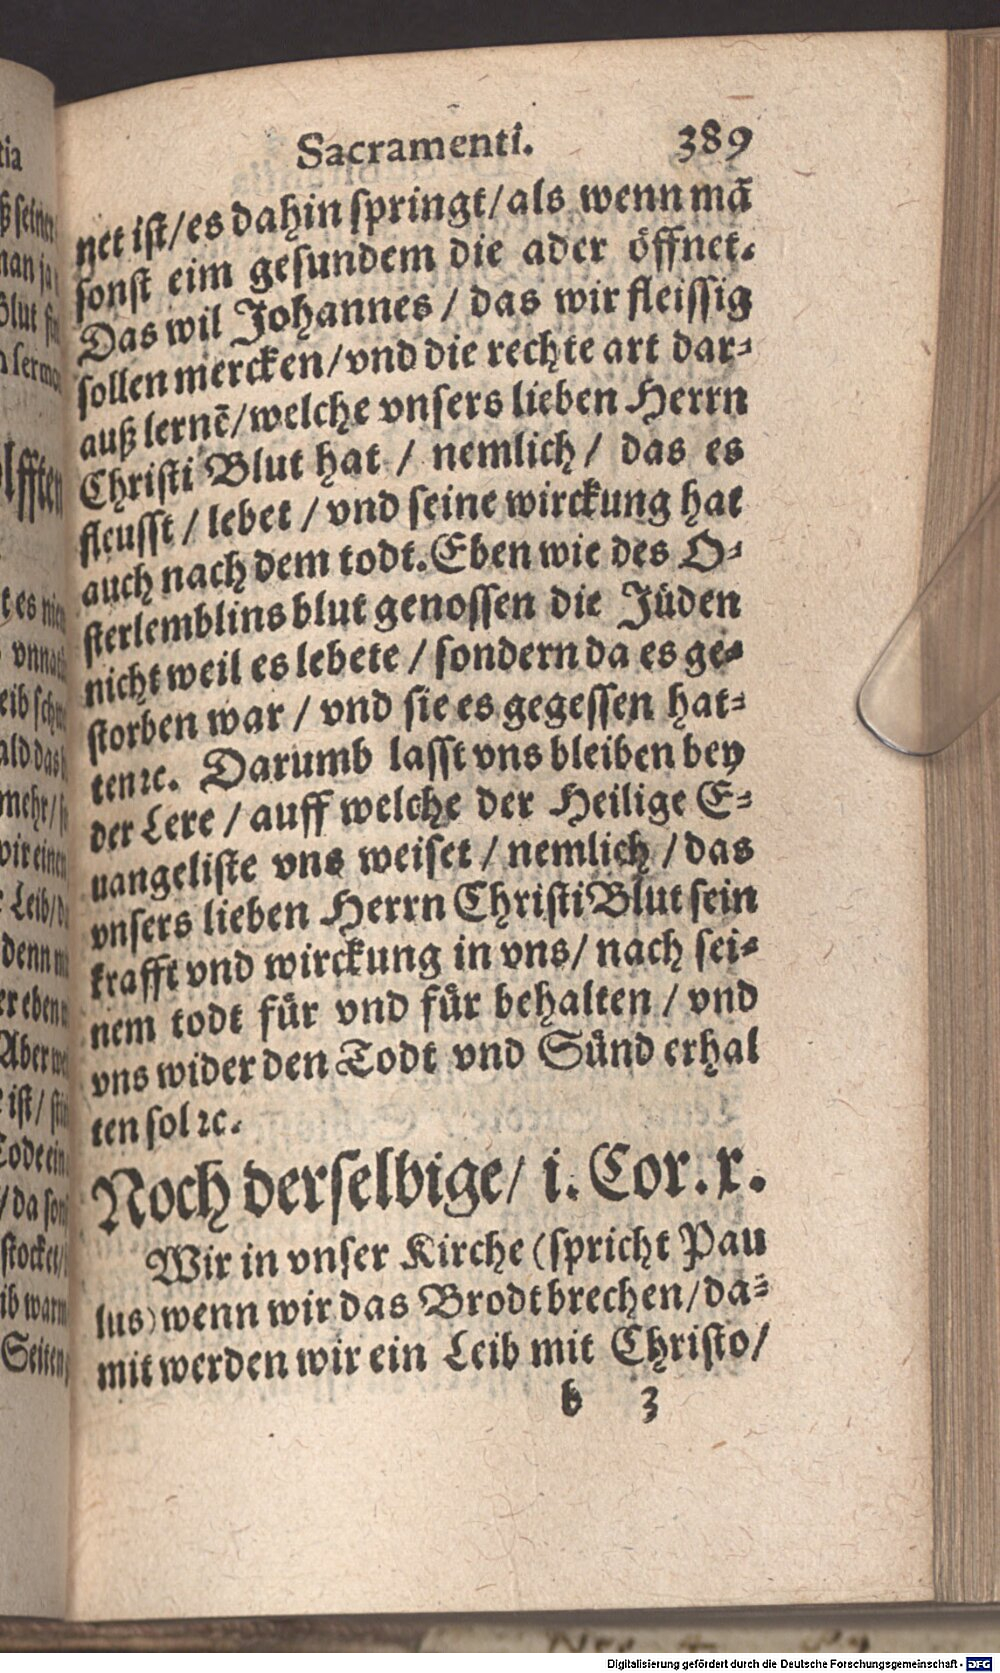 Sacramenti. 389
net ist/es dahin springt/als wenn mā
sonst eim gesundem die ader öffnet.
Das wil Johannes / das wir fleissig
sollen mercken/vnd die rechte art dar-
auß lernē/welche vnsers lieben Herrn
Christi Blut hat / nemlich / das es
fleusst / lebet / vnd seine wirckung hat
auch nach dem todt. Eben wie des O-
sterlemblins blut genossen die Jüden
nicht weil es lebete / sondern da es ge-
storben war / vnd sie es gegessen hat-
ten ꝛc. Darumb lasst vns bleiben bey
der Lere / auff welche der Heilige E-
uangeliste vns weiset / nemlich / das
vnsers lieben Herrn Christi Blut sein
krafft vnd wirckung in vns/ nach sei-
nem todt für vnd für behalten / vnd
vns wider den Todt vnd Sünd erhal
ten sol ꝛc.
Noch derselbige/ i. Cor. x.
Wir in vnser Kirche (spricht Pau
lus) wenn wir das Brodt brechen/da-
mit werden wir ein Leib mit Christo/
b 3
Digitalisierung gefördert durch die Deutsche Forschungsgemeinschaft - DFG